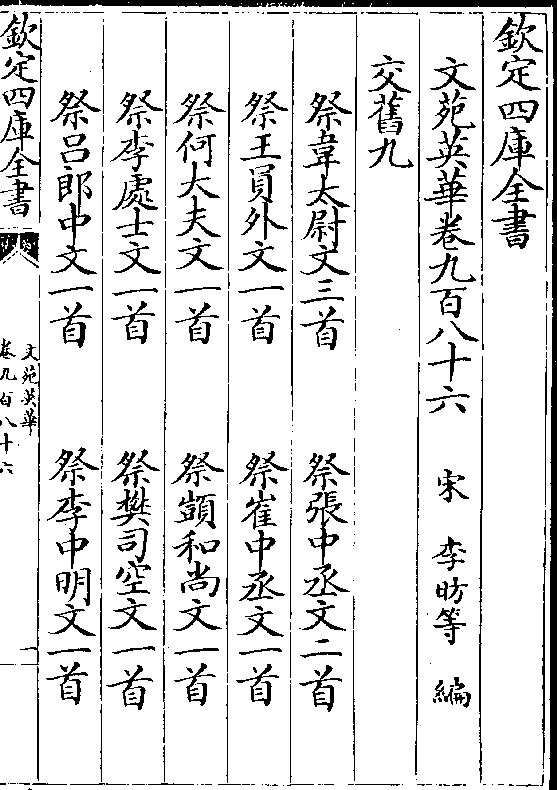 欽定四庫全書
文苑英華卷九百八十六 宋 李昉等 編
交舊九
祭韋太尉文三首 祭張中丞文二首
祭王員外文一首 祭崔中丞文一首
祭何大夫文一首 祭顗和尚文一首
祭李處士文一首 祭樊司空文一首
祭呂郎中文一首 祭李中明文一首
欽定四庫全書
文苑英華
卷九百八十六
一